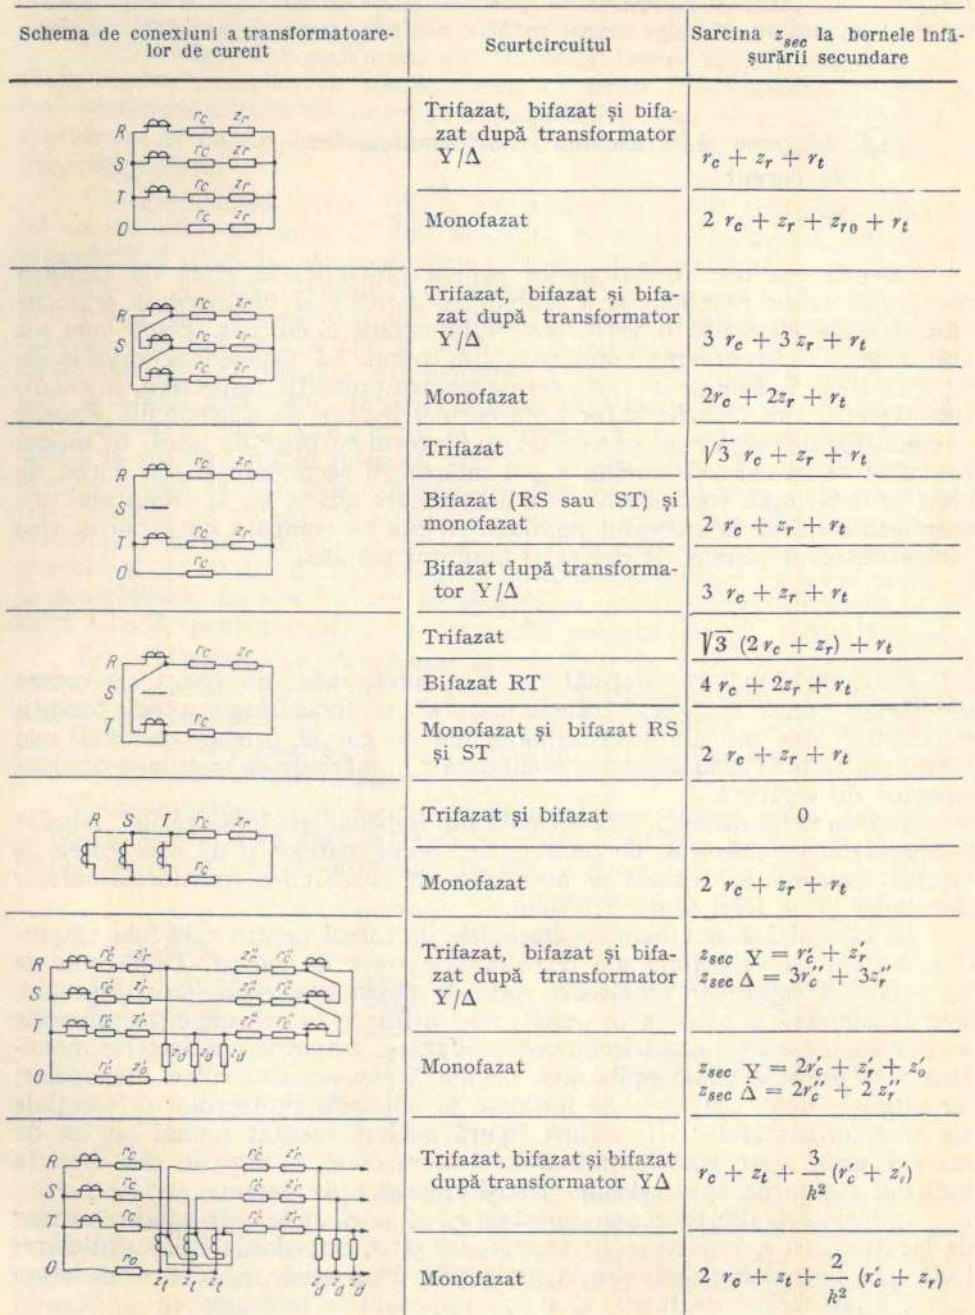 Schema de conexiuni a transformatoare-
lor de curent
Scurtcircuitul
Sarcina z_sec la bornele înfă-
șurării secundare
R r_c z_r
S r_c z_r
T r_c z_r
O r_c z_r
Trifazat, bifazat și bifa-
zat după transformator
Y/Δ
r_c + z_r + r_t
Monofazat
2 r_c + z_r + z_r0 + r_t
R r_c z_r
S r_c z_r
T r_c z_r
Trifazat, bifazat și bifa-
zat după transformator
Y/Δ
3 r_c + 3 z_r + r_t
Monofazat
2r_c + 2z_r + r_t
R r_c z_r
S
T r_c z_r
O r_c
Trifazat
√3 r_c + z_r + r_t
Bifazat (RS sau ST) și
monofazat
2 r_c + z_r + r_t
Bifazat după transforma-
tor Y/Δ
3 r_c + z_r + r_t
R r_c z_r
S
T r_c
Trifazat
√3 (2 r_c + z_r) + r_t
Bifazat RT
4 r_c + 2z_r + r_t
Monofazat și bifazat RS
și ST
2 r_c + z_r + r_t
R S T r_c z_r
r_c
Trifazat și bifazat
0
Monofazat
2 r_c + z_r + r_t
R r'_c z'_r z''_r r''_c
S r'_c z'_r z''_r r''_c
T r'_c z'_r z''_r r''_c
O r'_c z'_o z_d z_d z_d
Trifazat, bifazat și bifa-
zat după transformator
Y/Δ
z_sec Y = r'_c + z'_r
z_sec Δ = 3r''_c + 3z''_r
Monofazat
z_sec Y = 2r'_c + z'_r + z'_o
z_sec Δ = 2r''_c + 2 z''_r
R r_c r'_c z'_r
S r_c r'_c z'_r
T r_c r'_c z'_r
O r_o z_t z_t z_t z_d z_d z_d
Trifazat, bifazat și bifazat
după transformator YΔ
r_c + z_t + 3/k² (r'_c + z'_r)
Monofazat
2 r_c + z_t + 2/k² (r'_c + z_r)